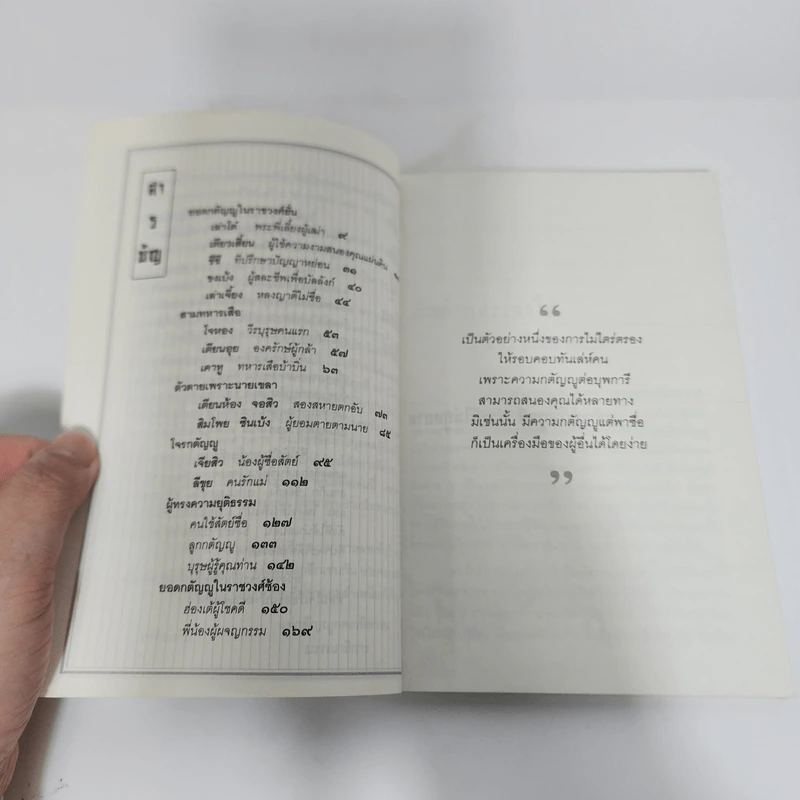 สา
ร
บัญ
ยอดกตัญญูในราชวงศ์ฮั่น
เล่าโต้ พระพี่เลี้ยงผู้เสน่า ๙
เตียวเสี้ยน ผู้ใช้ความงามสนองคุณแผ่นดิน
ชีซี ที่ปรึกษาปัญญาหย่อน ๓๑
ชงเบ้ง ผู้สละชีพเพื่อบัลลังก์ ๔๐
เล่าเจี้ยง หลงญาติไม่ซื่อ ๔๔
สามทหารเสือ
โจหอง วีรบุรุษคนแรก ๕๓
เตียนอุย องครักษ์ผู้กล้า ๕๗
เคาทู ทหารเสือบ้าบิ่น ๖๓
ตัวตายเพราะนายเขลา
เตียนห้อง จอสิว สองสหายตกอับ ๗๓
สิมโพย ซินเบ้ง ผู้ยอมตายตามนาย ๘๕
โจรกตัญญู
เจียสิว น้องผู้ซื่อสัตย์ ๙๕
ลีขุย คนรักแม่ ๑๑๒
ผู้ทรงความยุติธรรม
คนใช้สัตย์ซื่อ ๑๒๗
ลูกกตัญญู ๑๓๓
บุรุษผู้รู้คุณท่าน ๑๔๒
ยอดกตัญญูในราชวงศ์ซ้อง
ฮ่องเต้ผู้โชคดี ๑๕๐
พี่น้องผู้ผจญกรรม ๑๖๙
“
เป็นตัวอย่างหนึ่งของการไม่ไตร่ตรอง
ให้รอบคอบทันเล่ห์คน
เพราะความกตัญญูต่อบุพการี
สามารถสนองคุณได้หลายทาง
มิเช่นนั้น มีความกตัญญูแต่พาซื่อ
ก็เป็นเครื่องมือของผู้อื่นได้โดยง่าย
”